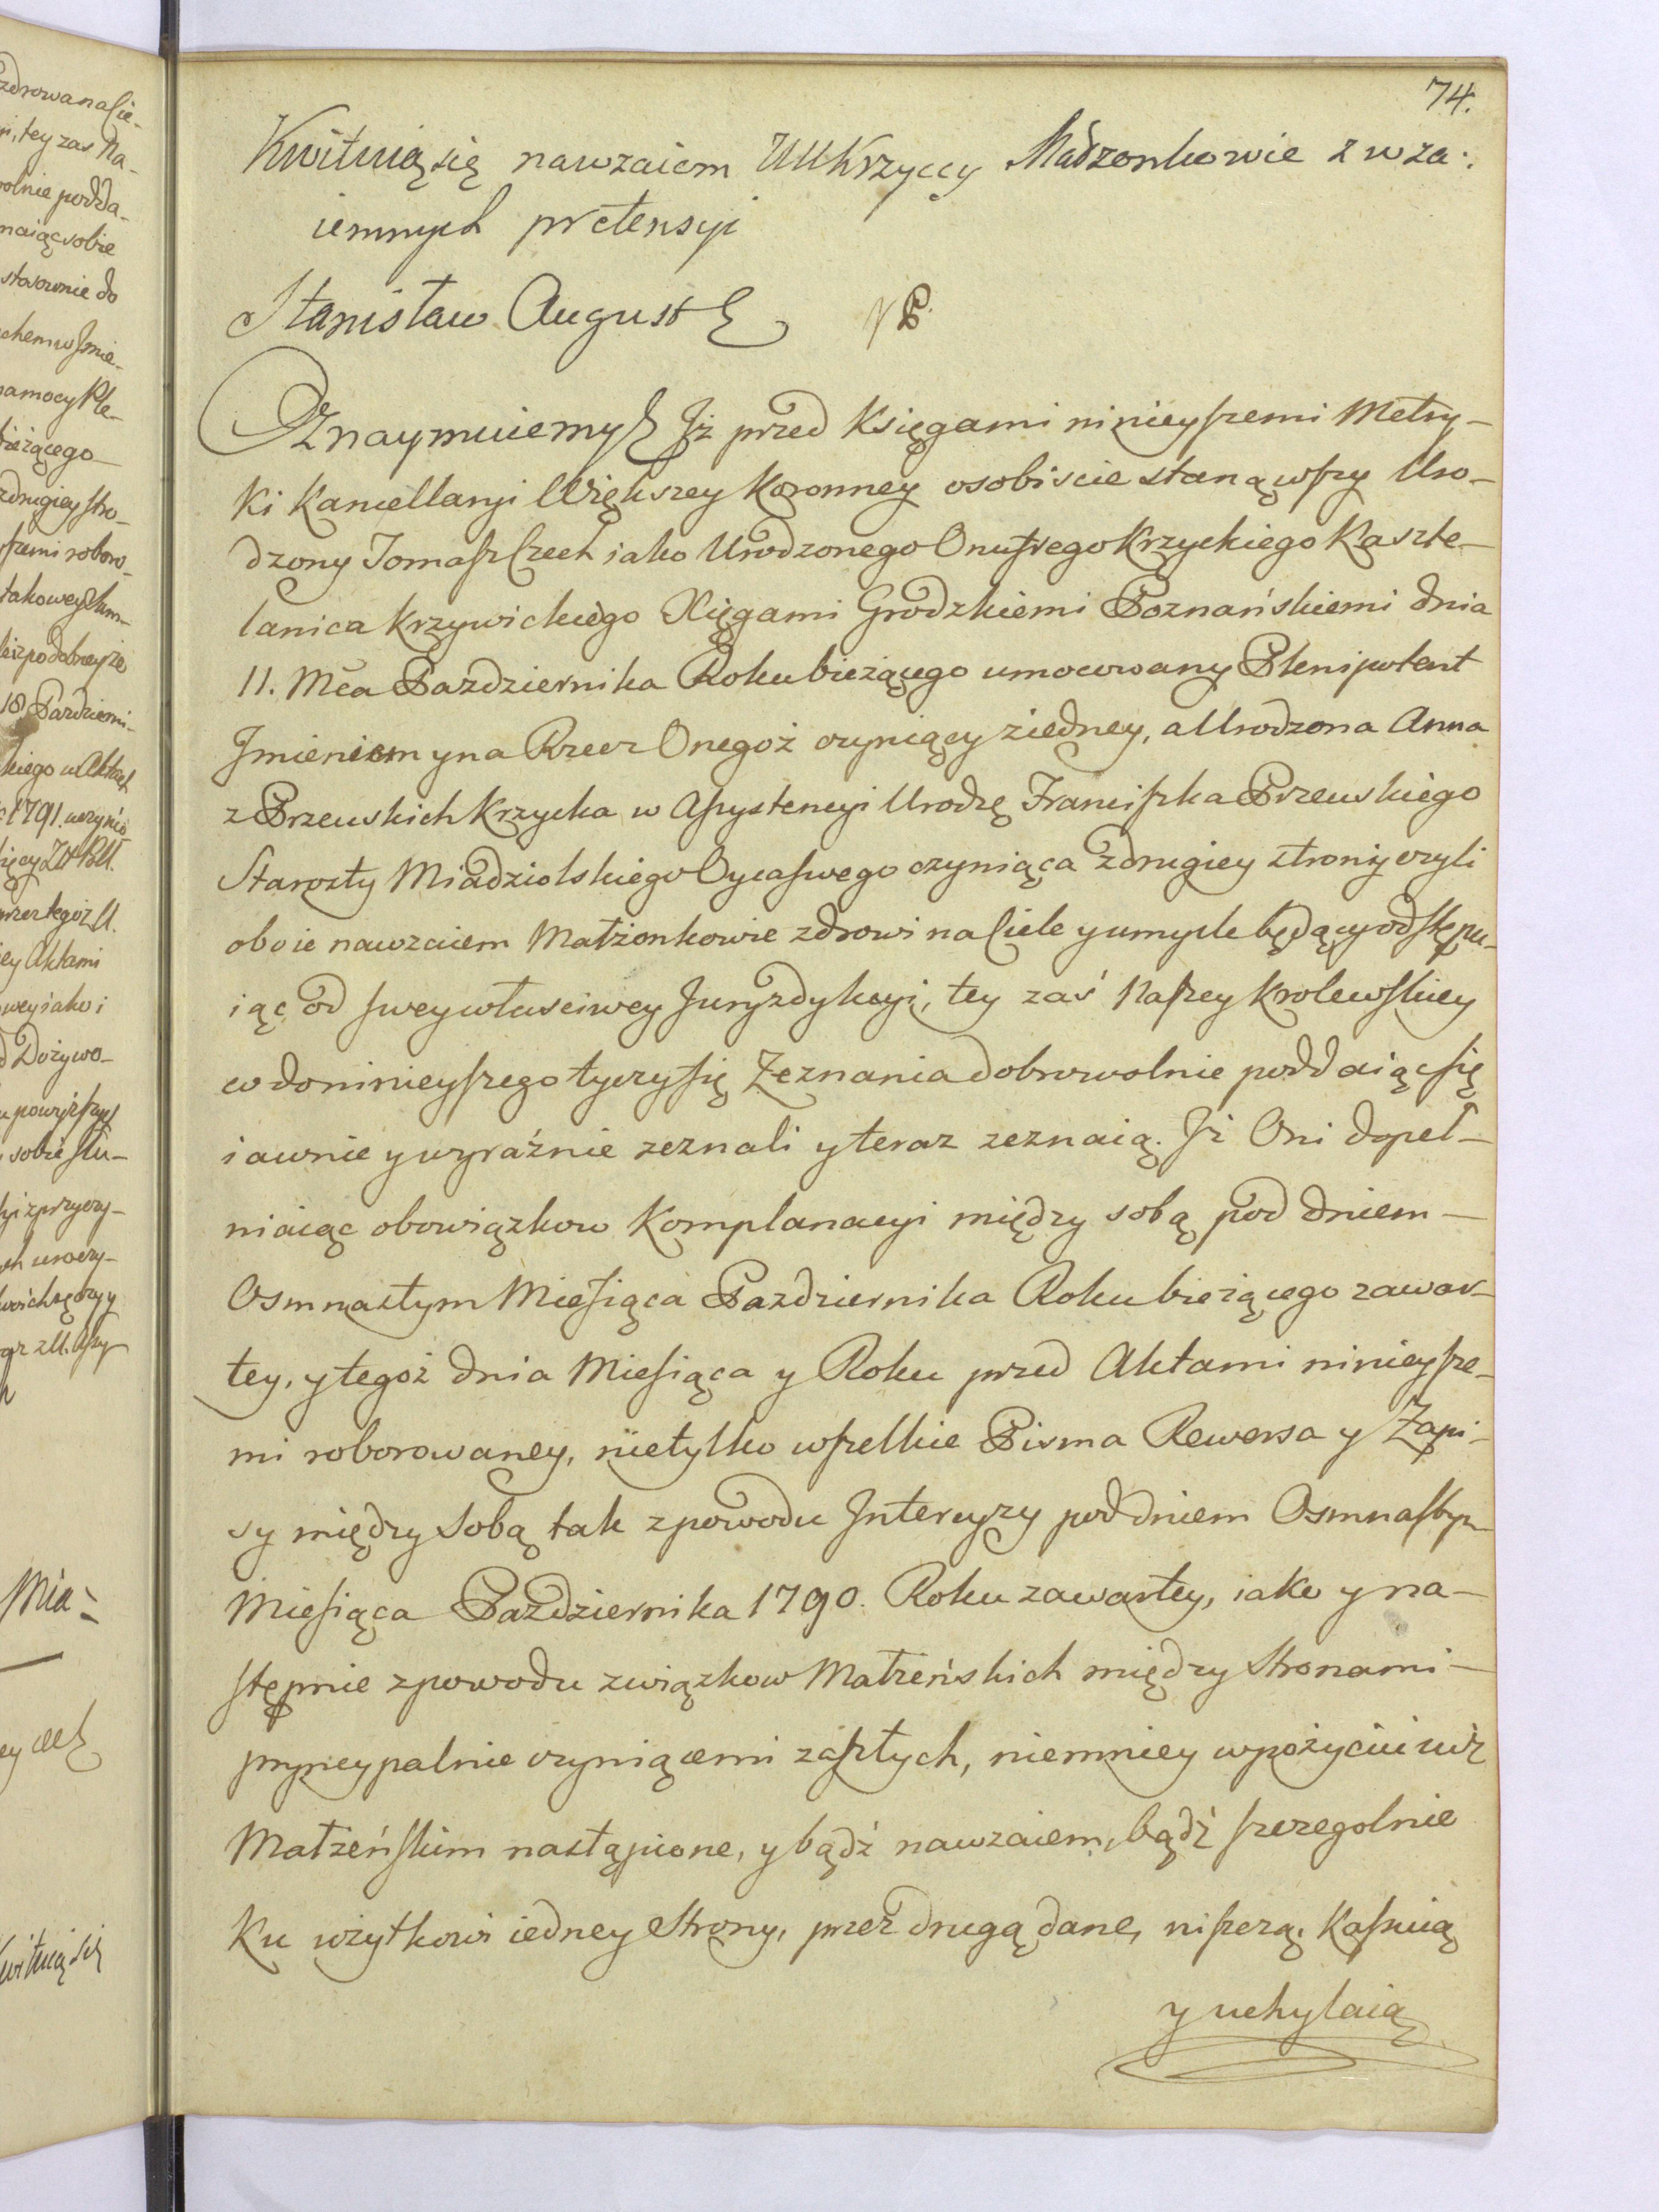 74.
Kwituią się nawzaiem UUKrzyccy Małżonkowie z wza:
iemnych pretensyi
Stanisław August
Oznaymuiemy Jż przed Księgami ninieyszemi Metry-
ki Kancellaryi Większey Koronney osobiscie stanąwszy Uro-
dzony Tomasz Czech iako Urodzonego Onufrego Krzyckiego Kaszte-
lanica Krzywickiego Xięgami Grodzkiemi Poznańskiemi dnia
11. Mca Pazdziernika Roku bieżącego umocowany Plenipotent
Jmieniem y na Rzecz Onegoż czyniący ziedney, a Urodzona Anna
z Przeuskich Krzycka w Assystencyi Urodzę Franciszka Przeuskiego
Starosty Miadziolskiego Oyca swego czyniąca zdrugiey strony czyli
oboie nawzaiem Małżonkowie zdrowi na Ciele y umysle będący odstępu-
iąc od swey włusciwey Juryzdykcyi, tey zaś Naszey Krolewskiey
co do ninieyszego tyczy się Zeznania dobrowolnie poddaiąc się
iawnie y wyraźnie zeznali y teraz zeznaią. Jż Oni dopeł-
niaiąc obowiązkow Komplanacyi między sobą pod dniem
Osmnastym Miesiąca Pazdziernika Roku bieżącego zawar-
tey, y tegoż dnia Miesiąca y Roku przed Aktami ninieysze-
mi roborowaney, nietylko wszelkie Pisma Rewersa y Zapi-
sy między sobą tak zpowodu Intercyzy pod dniem Osmnastym
Miesiąca Pazdziernika 1790. Roku zawartey, iako y na-
stępnie zpowodu związkow Małżeńskich między Stronami
pryncypalnie czyniącemi zaszłych, niemniey w pożyciu iuż
Małżeńskim nastąpione, y bądź nawzaiem, bądź szczegolnie
Ku użytkowi iedney Strony, przez drugą dane, niszczą, Kassuią
y uchylaią